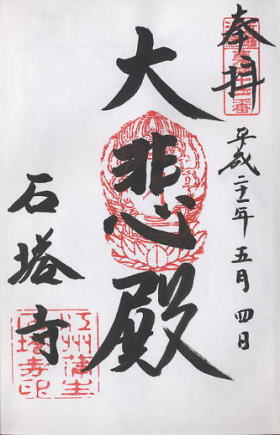 奉拝
平成二十一年五月四日
大悲殿
石塔寺
江州蒲生
石塔寺印